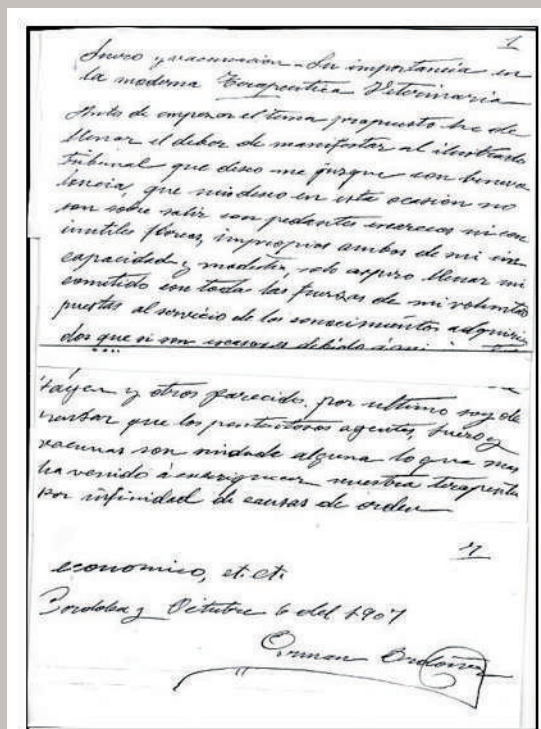 1
Suero y vacunacion – Su importancia en
la moderna Terapeutica Veterinaria
Antes de empezar el tema propuesto he de
llenar el deber de manifestar al ilustrado
Tribunal que deseo me juzgue con beneva
lencia, que mis deseo en esta ocasión no
son sobre salir con pedantes ni con
inutiles flores, impropios ambos de mi in
capacidad y modestia, solo aspiro llenar mi
cometido con todas las fuerzas de mi voluntad
puestas al servicio de los conocimientos adquiri
dos que si son escasos es debido á mi
y otros parecido, por ultimo soy de
pensar que los agentes, suero y
vacunas son sinduda alguna lo que mas
ha venido á enriquecer nuestra terapeutica
por infinidad de causas de orden
7
economico, et. ct.
Cordoba y Octubre 6 del 1907
German Ordóñez